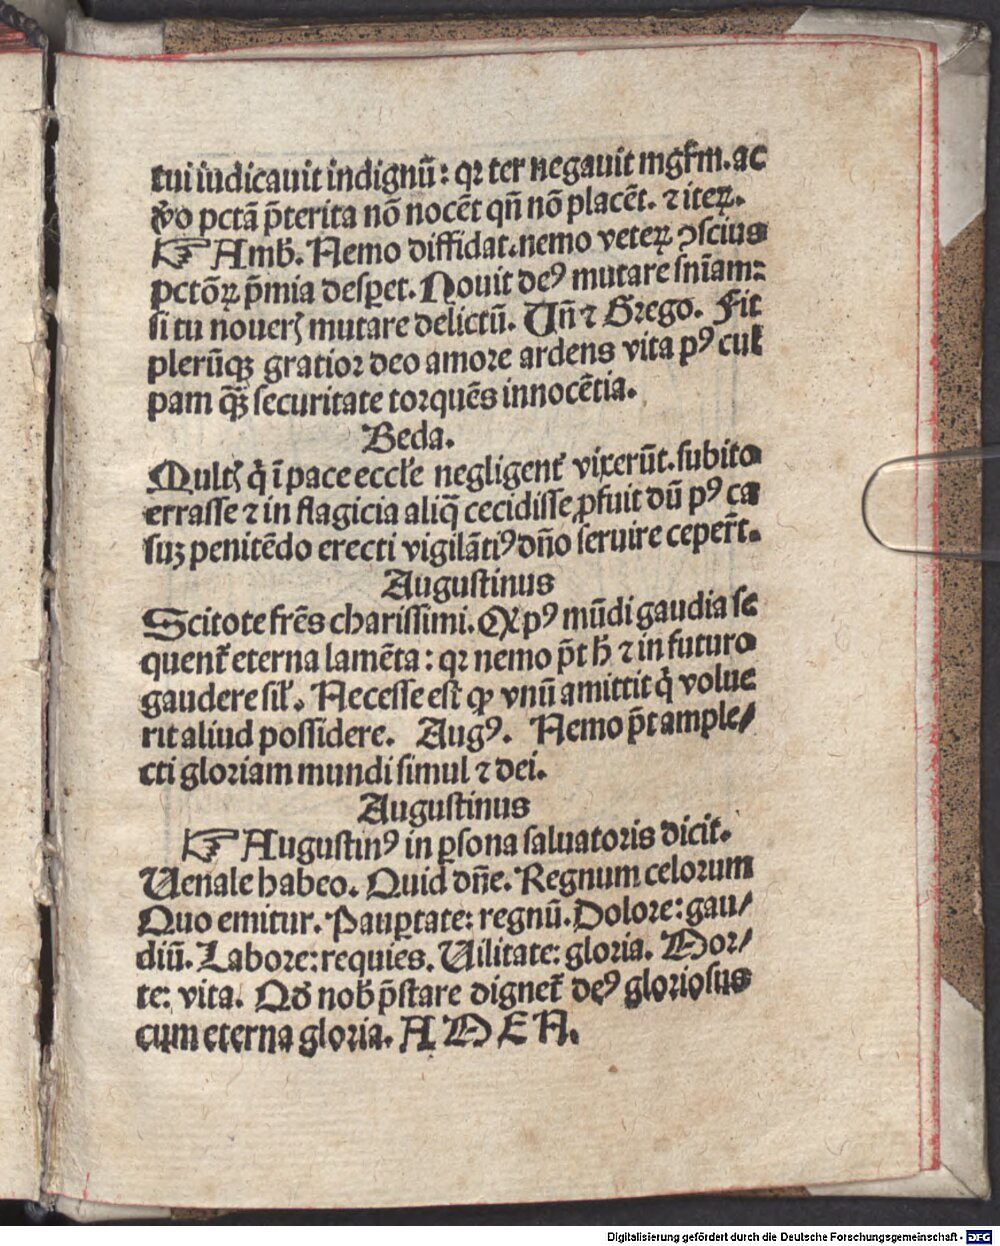 tui iudicauit indignū: qꝛ ter negauit mgr̄m. ac
ꝟo pctā p̄terita nō nocēt qn̄ nō placēt. ⁊ iteꝝ.
☞ Amb̄. Nemo diffidat. nemo veteꝝ ↄscius
pctōꝝ p̄mia desꝑet. Nouit deꝰ mutare sn̄iam:
si tu nouerꝭ mutare delictū. Un̄ ⁊ Grego. Fit
plerūqꝫ gratior deo amore ardens vita pꝰ cul
pam qꝫ̄ securitate torquēs innocētia.
Beda.
Multꝭ q̇ ī pace eccl̄e negligent᷑ vixerūt. subito
errasse ⁊ in flagicia aliq̄ cecidisse ꝓfuit dū pꝰ ca
suꝫ penitēdo erecti vigilātiꝰ dn̄o seruire ceper̄t.
Augustinus
Scitote fr̄es charissimi. Qꝛ pꝰ mūdi gaudia se
quent᷑ eterna lamēta: qꝛ nemo p̄t h̄ ⁊ in futuro
gaudere sil̄. Necesse est ꝙ vnū amittit q̇ volue
rit aliud possidere. Augꝰ. Nemo p̄t ample/
cti gloriam mundi simul ⁊ dei.
Augustinus
☞ Augustinꝰ in ꝑsona saluatoris dicit.
Uenale habeo. Quid dn̄e. Regnum celorum
Quo emitur. Pauꝑtate: regnū. Dolore: gau/
diū. Labore: requies. Uilitate: gloria. Mor/
te: vita. Qd̄ nob̄ p̄stare dignet᷑ deꝰ gloriosus
cum eterna gloria. A M E N.
Digitalisierung gefördert durch die Deutsche Forschungsgemeinschaft - DFG